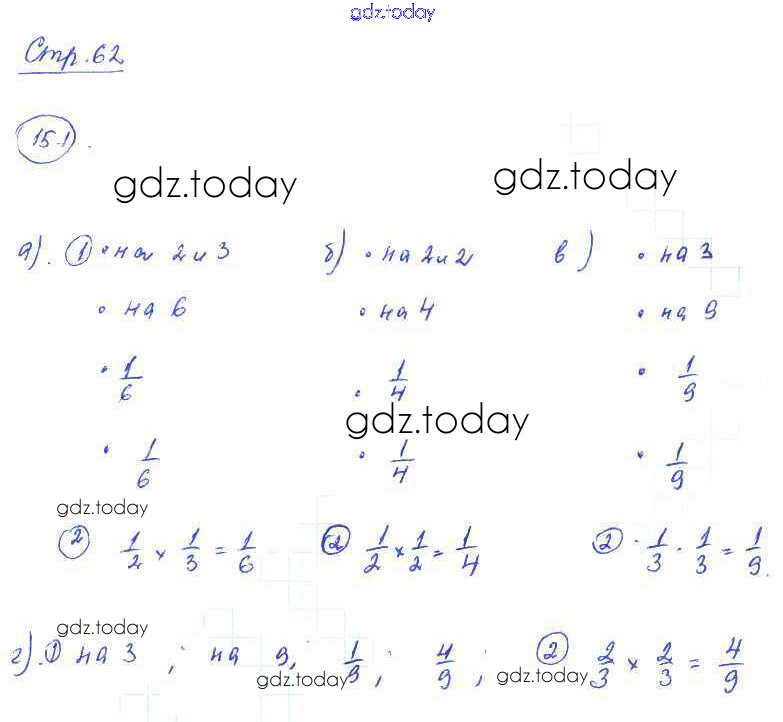 gdz.today
Стр. 62
15.1.
gdz.today gdz.today
а). ① • на 2 и 3 б) • на 2 и 2 в) • на 3
• на 6 • на 4 • на 9
• 1/6 • 1/4 • 1/9
gdz.today
• 1/6 • 1/4 • 1/9
gdz.today
② 1/2 × 1/3 = 1/6 ② 1/2 × 1/2 = 1/4 ② • 1/3 · 1/3 = 1/9.
gdz.today
г). ① на 3 ; на 9, 1/9 ; 4/9 ; ② 2/3 × 2/3 = 4/9
gdz.today gdz.today